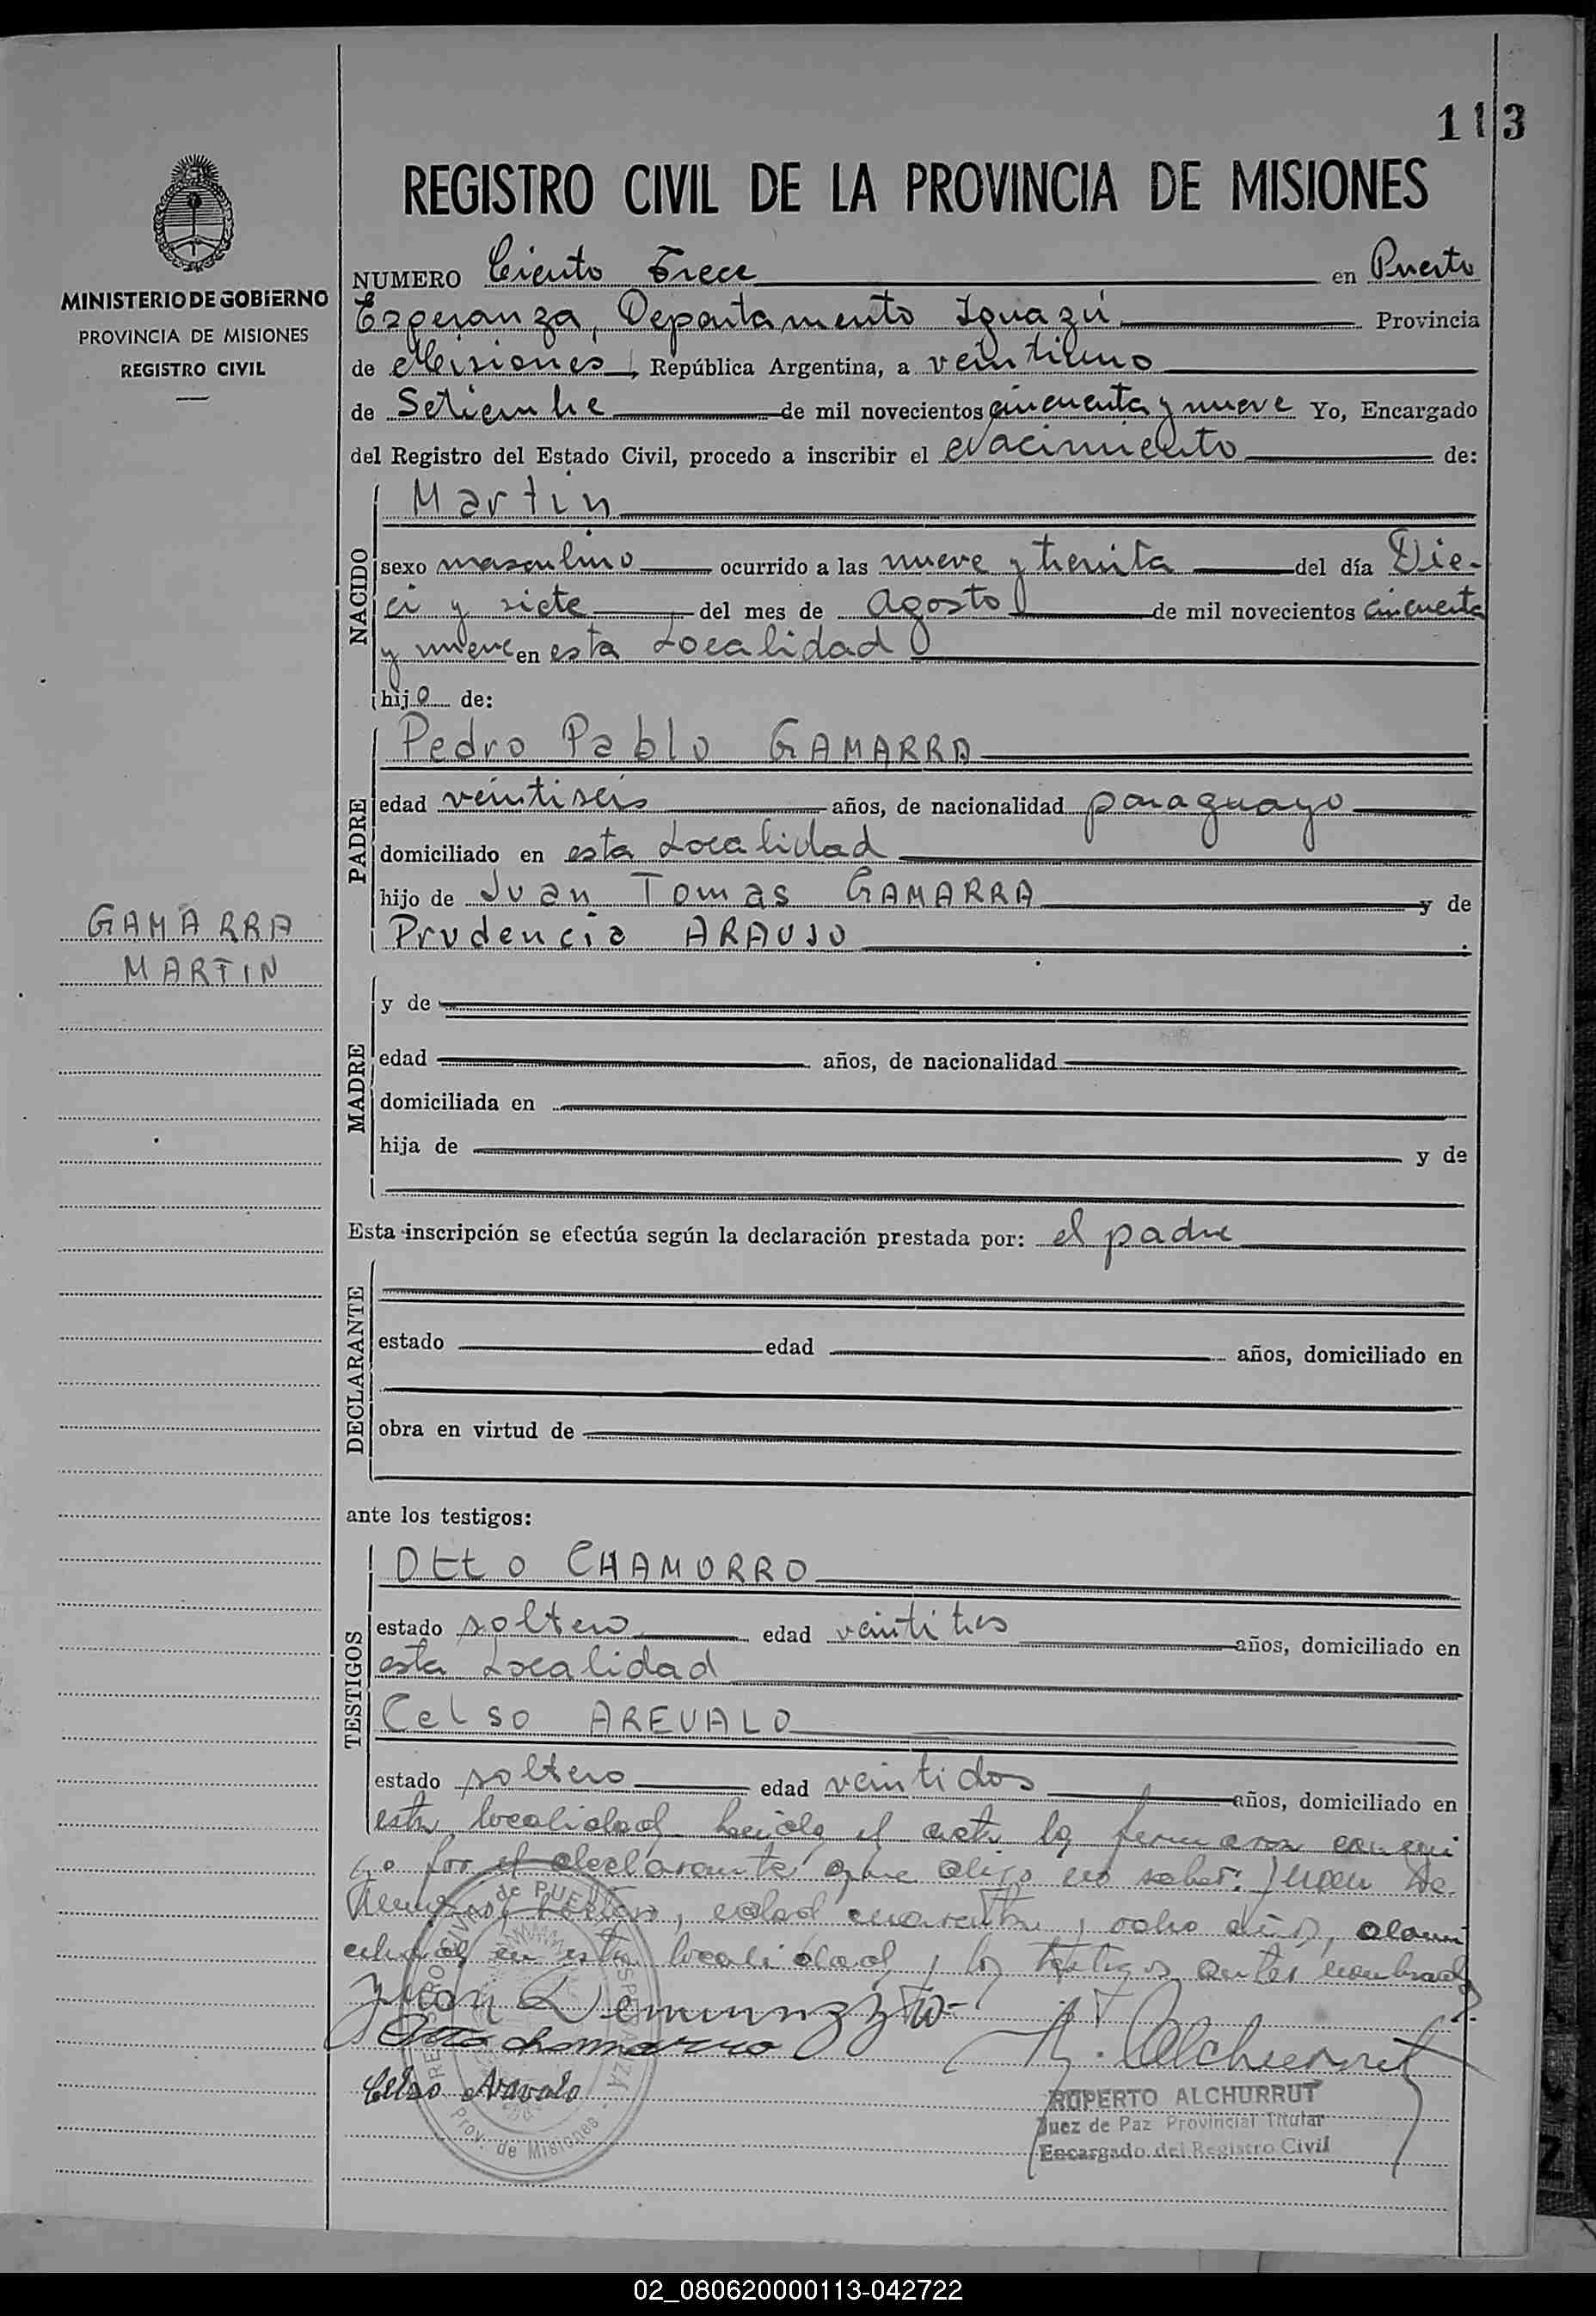 113
REGISTRO CIVIL DE LA PROVINCIA DE MISIONES
MINISTERIO DE GOBIERNO
PROVINCIA DE MISIONES
REGISTRO CIVIL
NUMERO Ciento Trece en Puerto
Esperanza, Departamento Iguazú Provincia
de Misiones, República Argentina, a veintiuno
de Setiembre de mil novecientos cincuenta y nueve Yo, Encargado
del Registro del Estado Civil, procedo a inscribir el Nacimiento de:
NACIDO
Martin
sexo masculino ocurrido a las nueve y treinta del día Die-
ci y siete del mes de Agosto de mil novecientos cincuenta
y nueve en esta Localidad
hijo de:
PADRE
Pedro Pablo GAMARRA
edad veintiseis años, de nacionalidad paraguayo
domiciliado en esta Localidad
hijo de Juan Tomas GAMARRA y de
Prudencia ARAUJO
GAMARRA
MARTIN
MADRE
y de
edad años, de nacionalidad
domiciliada en
hija de y de
Esta inscripción se efectúa según la declaración prestada por: el padre
DECLARANTE
estado edad años, domiciliado en
obra en virtud de
ante los testigos:
TESTIGOS
Otto CHAMORRO
estado soltero edad veintitres años, domiciliado en
esta Localidad
Celso AREVALO
estado soltero edad veintidos años, domiciliado en
esta localidad leída el acta la firmaron conmi
go por el declarante que dijo no saber: Juan
edad cuarenta y ocho años, domi
ciliado en esta localidad y los testigos antes nombrados
Juan
Otto Chamorro
Celso Arevalo
R. Alchurrut
RUPERTO ALCHURRUT
Juez de Paz Provincial Titular
Encargado del Registro Civil
REGISTRO CIVIL de PUERTO ESPERANZA
Prov. de Misiones
02_080620000113-042722